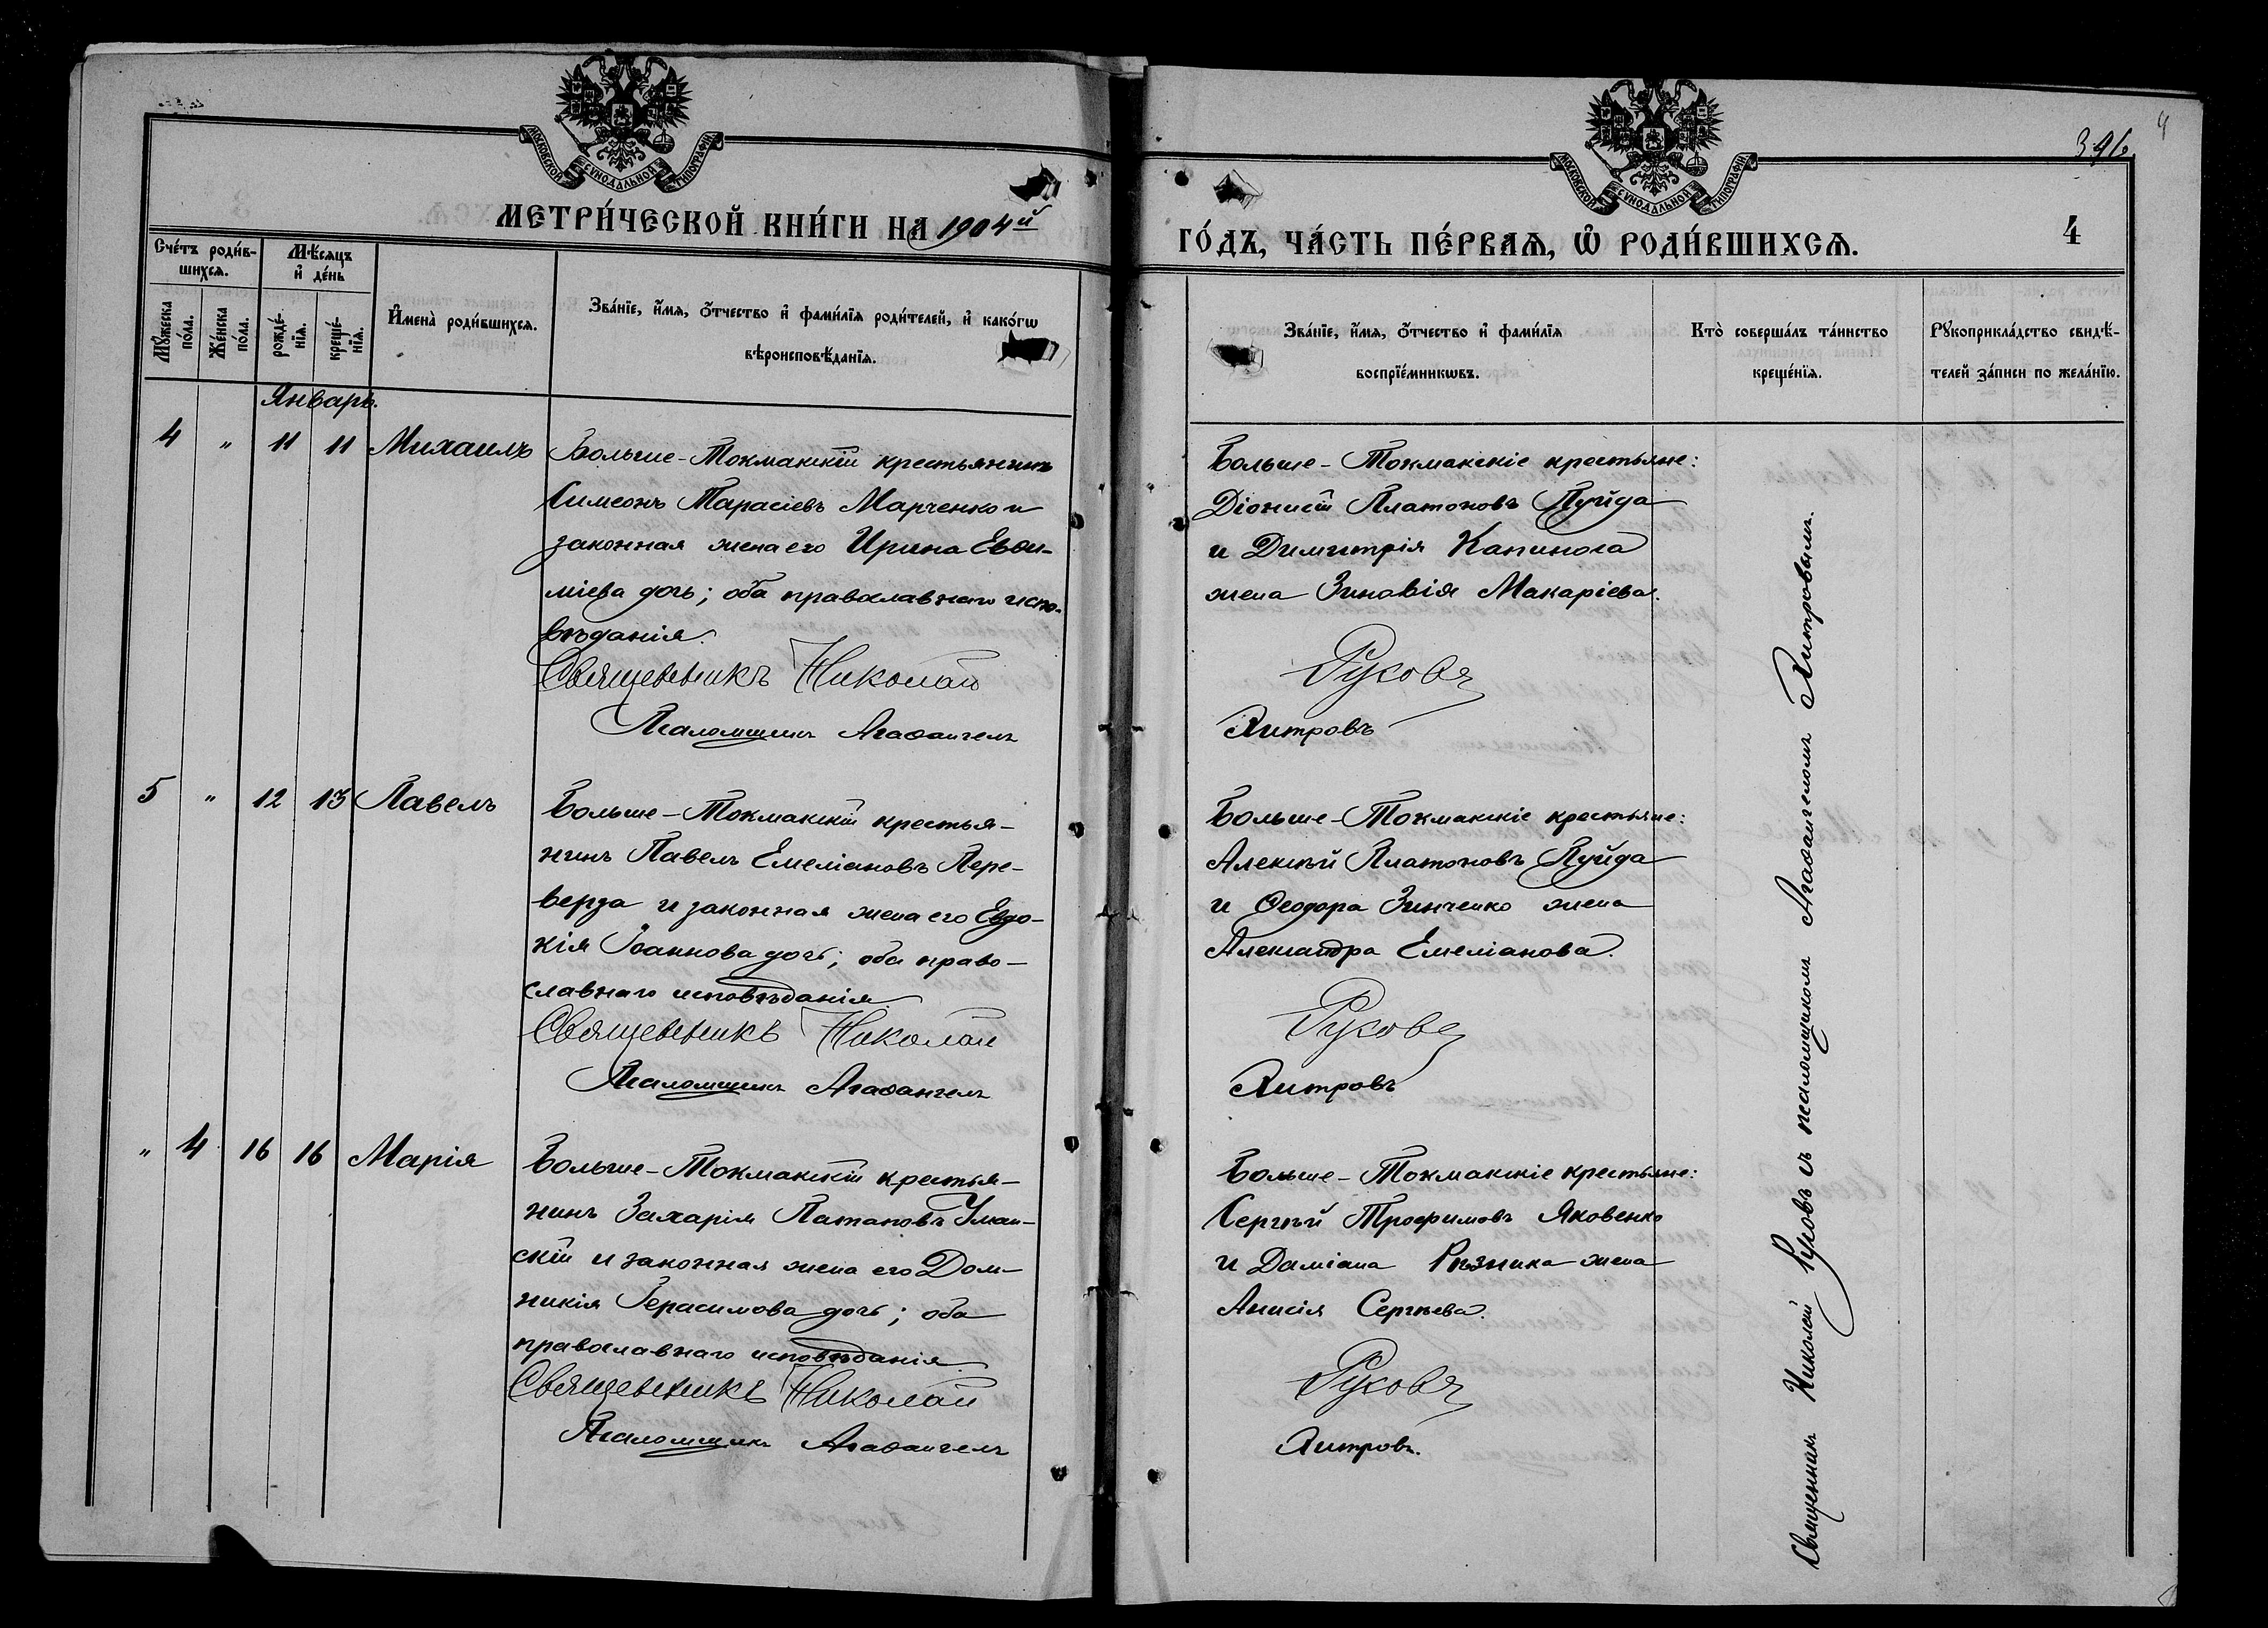 МОСКОВСКОЙ СѴНОДАЛЬНОЙ ТИПОГРАФІИ
МЕТРИ́ЧЕСКОЙ КНИ́ГИ НА 1904й
Сче́тъ роди́в-
шихся.
Мѣ́сяцъ
и҆ де́нь
Мꙋ́жеска
по́ла.
Же́нска
по́ла.
рожде́-
нїя.
креще́-
нїя.
И҆мена̀ роди́вшихся.
Зва́нїе, и҆́мя, ѻ҆́тчество и҆ фами́лїя роди́телей, и҆ како́гѡ
вѣроисповѣ́данїя.
Январь.
4 " 11 11 Михаилъ
Больше-Токмакскій крестьянинъ
Симеонъ Тарасіевъ Марченко и
законная жена его Ирина Евѳи-
міева дочь; оба православнаго испо-
вѣданія.
Священникъ Николай
Псаломщикъ Агаѳангелъ
5 " 12 13 Павелъ
Больше-Токмакскій крестья-
нинъ Павелъ Емеліановъ Пере-
верза и законная жена его Евдо-
кія Іоаннова дочь; оба право-
славнаго исповѣданія.
Священникъ Николай
Псаломщикъ Агаѳангелъ
" 4 16 16 Марія
Больше-Токмакскій крестья-
нинъ Захарія Патаповъ Уман-
скій и законная жена его Дом-
никія Герасимова дочь; оба
православнаго исповѣданія.
Священникъ Николай
Псаломщикъ Агаѳангелъ
4
396
МОСКОВСКОЙ СѴНОДАЛЬНОЙ ТИПОГРАФІИ
ГО́ДЪ, ЧА́СТЬ ПЕ́РВАЯ, Ѡ҆ РОДИ́ВШИХСЯ.
4
Зва́нїе, и҆́мя, ѻ҆́тчество и҆ фами́лїя
воспрїе́мникѡвъ.
Кто̀ соверша́лъ та́инство
креще́нїя.
Рꙋкоприкла́дство свидѣ́-
телей за́писи по жела́нїю.
Больше-Токмакскіе крестьяне:
Діонисій Платоновъ Пуйда
и Димитрія Капиноса
жена Зиновія Макаріева.
Русовъ
Хитровъ
Больше-Токмакскіе крестьяне:
Алексѣй Платоновъ Пуйда
и Ѳеодора Зинченко жена
Александра Емеліанова.
Русовъ
Хитровъ
Больше-Токмакскіе крестьяне:
Сергѣй Трофимовъ Яковенко
и Даміана Рѣзника жена
Анисія Сергѣева.
Русовъ
Хитровъ.
Священникъ Николай Русовъ съ псаломщикомъ Агаѳангеломъ Хитровымъ.